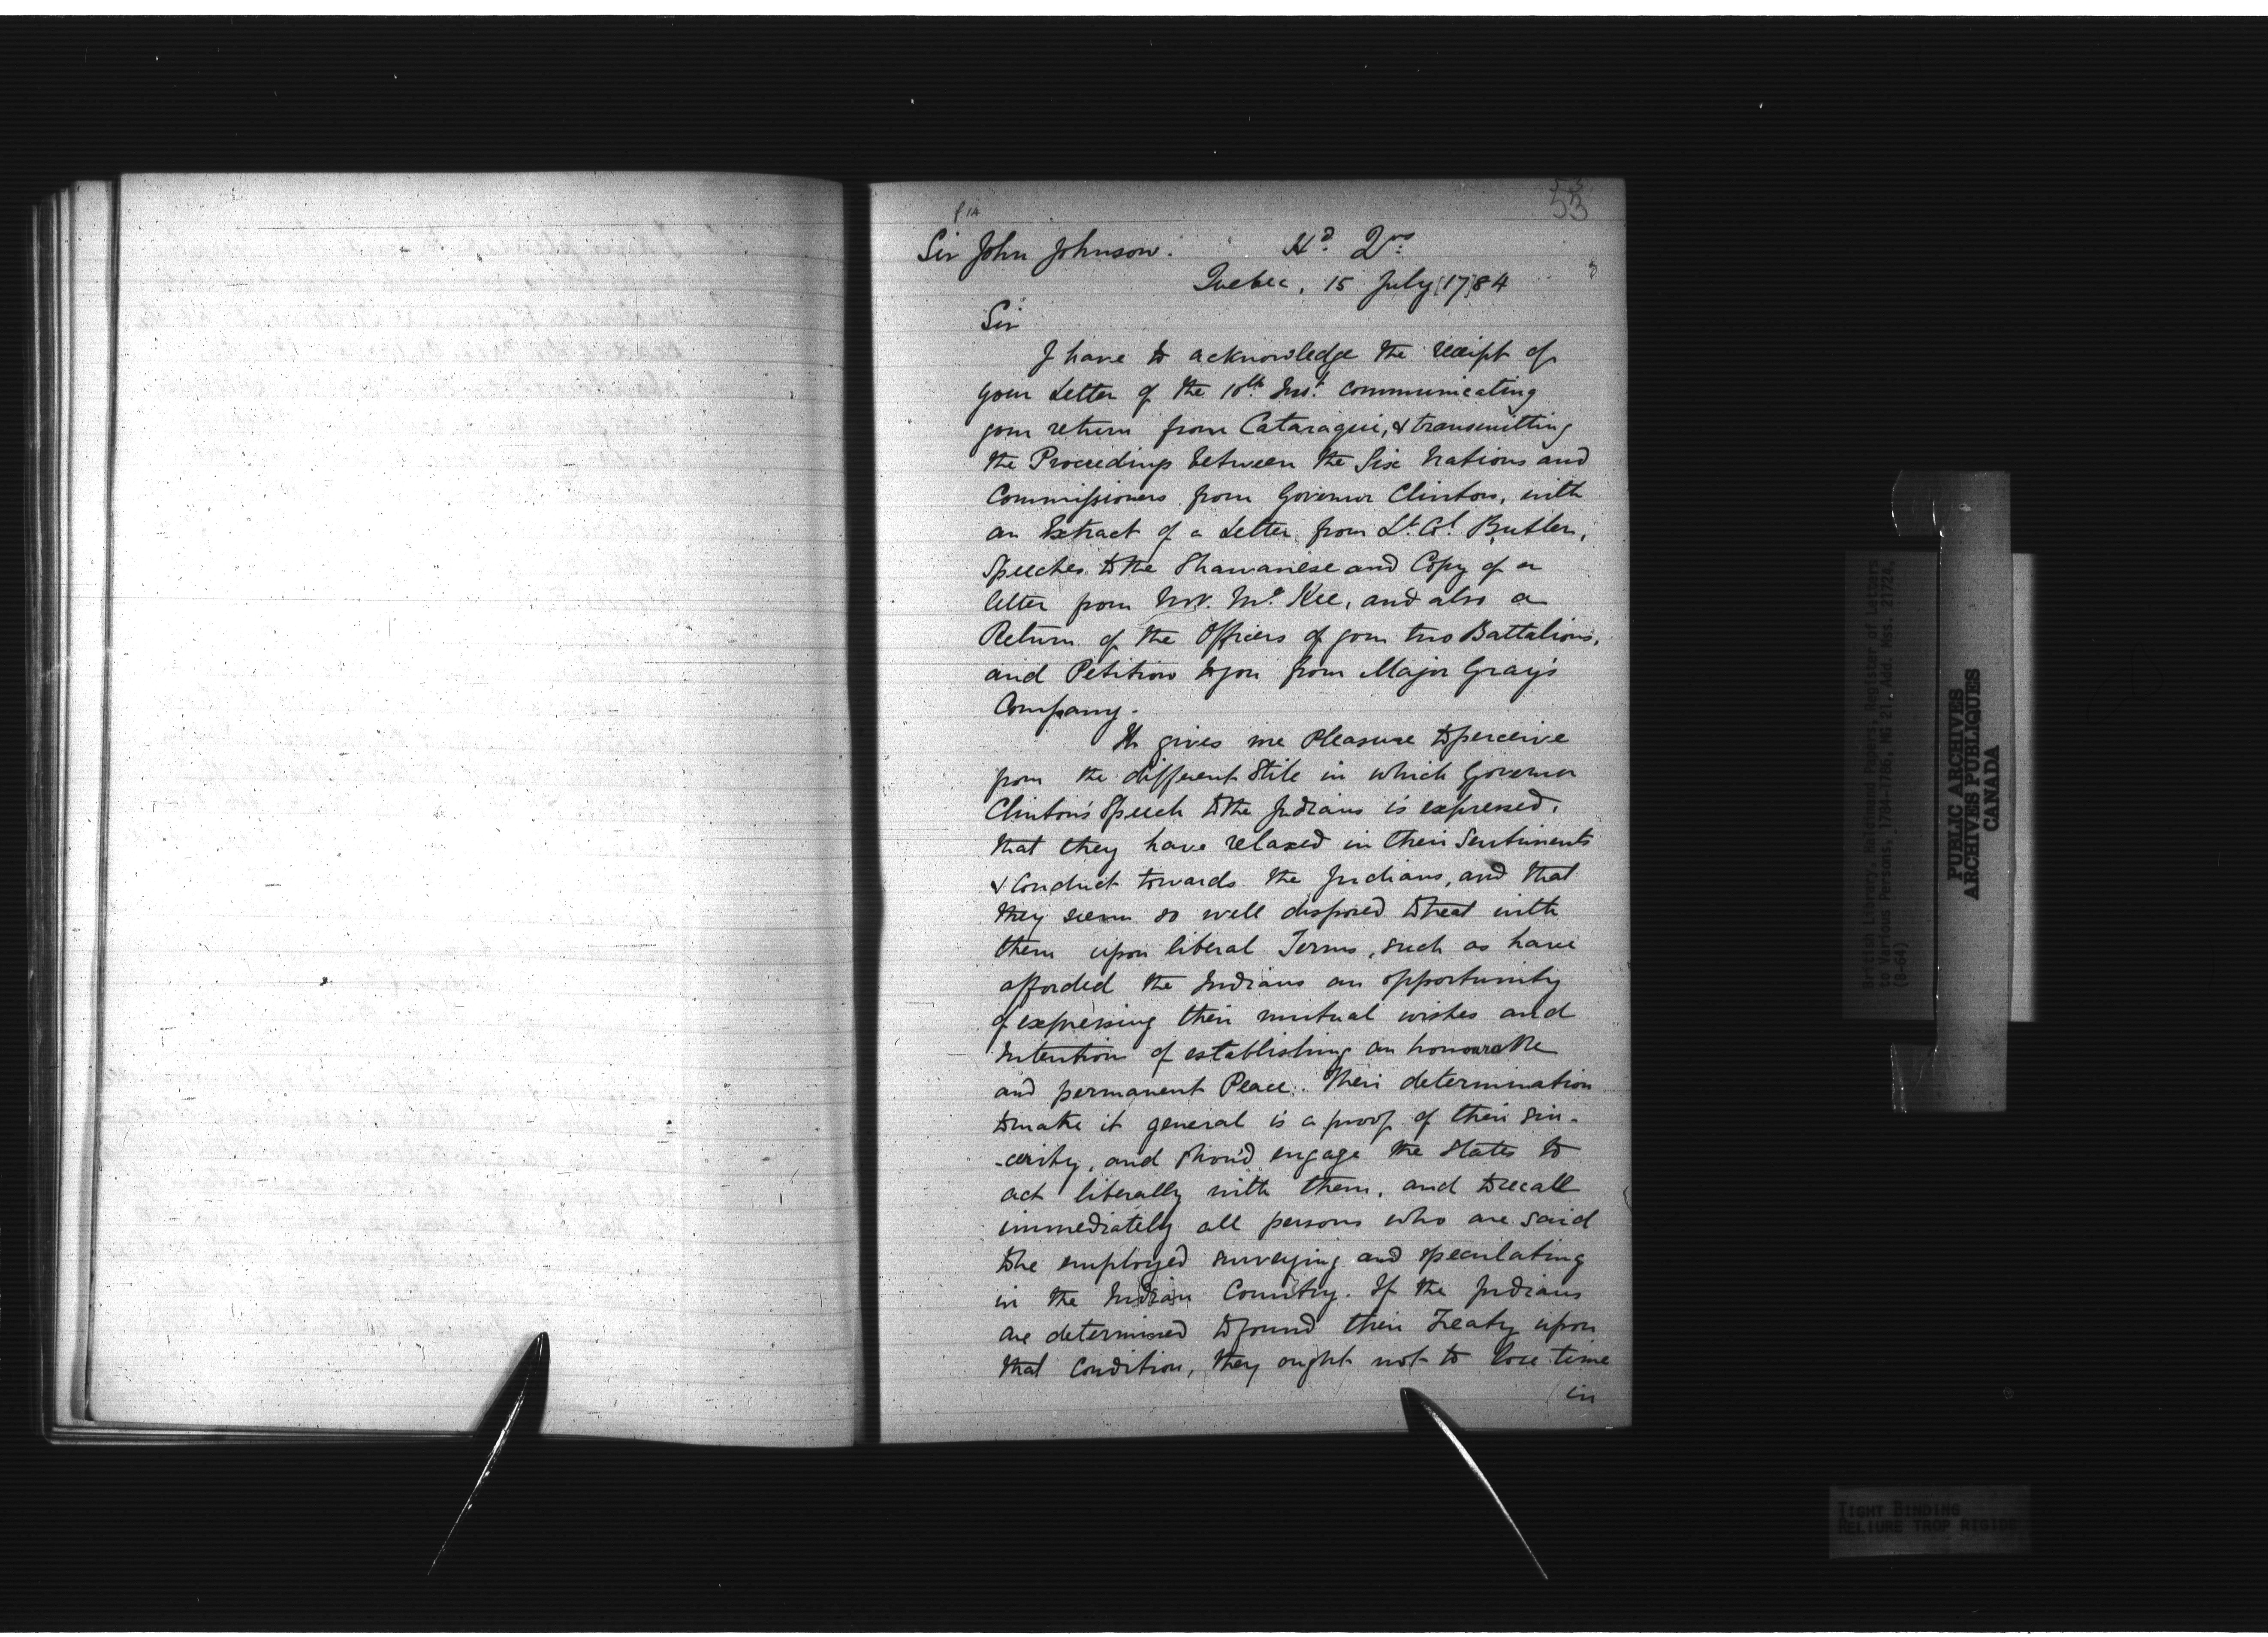 53
53
Sir John Johnson. Hd. Qrs.
Quebec, 15 July [17]84
Sir
I have to acknowledge the receipt of
your Letter of the 10th. Inst. communicating
your return from Cataraqui, & transmitting
the Proceedings between the Six Nations and
Commissioners from Governor Clinton, with
an Extract of a Letter from Lt. Col. Butler,
Speeches to the Shawanese and Copy of a
letter from Mr. McKee, and also a
Return of the Officers of your two Battalions,
and Petition to you from Major Gray's
Company.
It gives me Pleasure to perceive
from the different Stile in which Governor
Clinton's Speech to the Indians is expressed,
that they have relaxed in their Sentiments
& Conduct towards the Indians, and that
they seem so well disposed to treat with
them upon liberal Terms, such as have
afforded the Indians an opportunity
of expressing their mutual wishes and
Intentions of establishing an honourable
and permanent Peace. Their determination
to make it general is a proof of their sin-
-cerity, and shou'd engage the States to
act liberally with them, and to recall
immediately all persons who are said
to be employed surveying and speculating
in the Indian Country. If the Indians
are determined to found their Treaty upon
that Condition, they ought not to lose time
in
British Library, Haldimand Papers, Register of Letters
to Various Persons, 1784-1786, MG 21, Add. Mss. 21724,
(B-64)
PUBLIC ARCHIVES
ARCHIVES PUBLIQUES
CANADA
TIGHT BINDING
RELIURE TROP RIGIDE